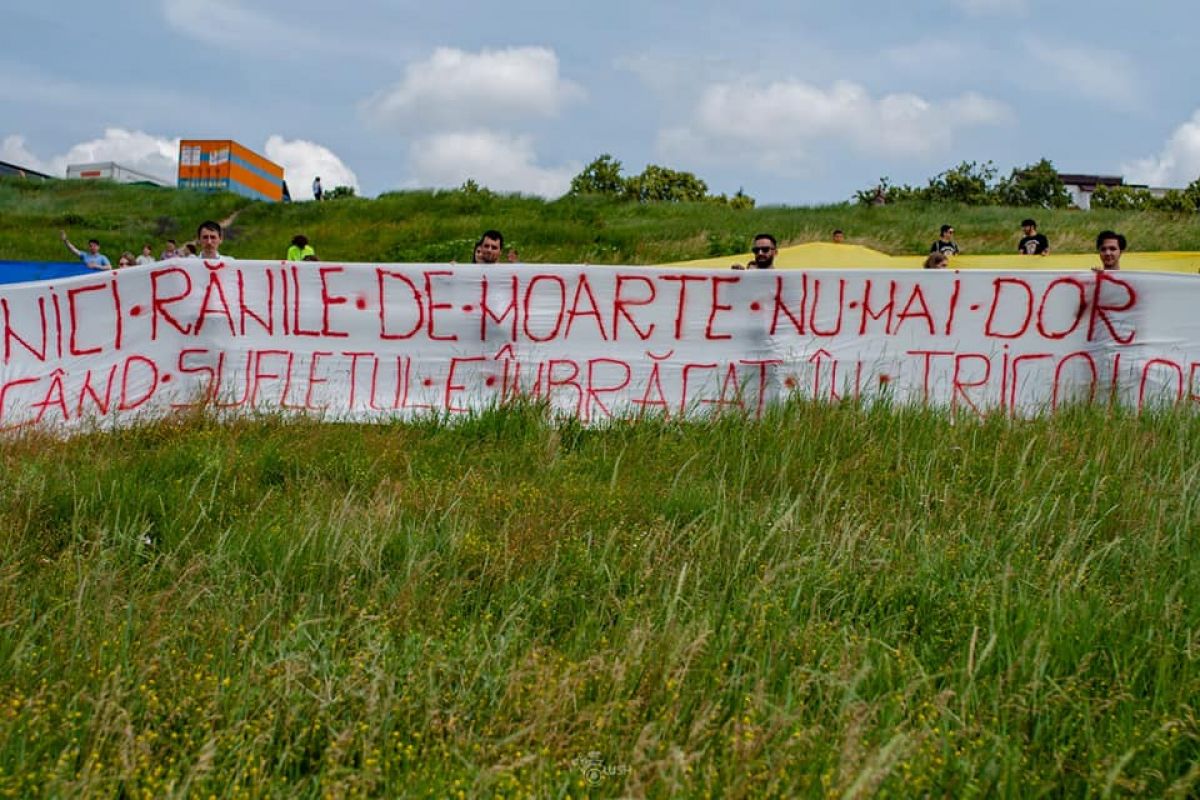 NICI·RĂNILE·DE·MOARTE·NU·MAI·DOR
CÂND·SUFLETUL·E·ÎMBRĂCAT·ÎN·TRICOLOR
LUSH